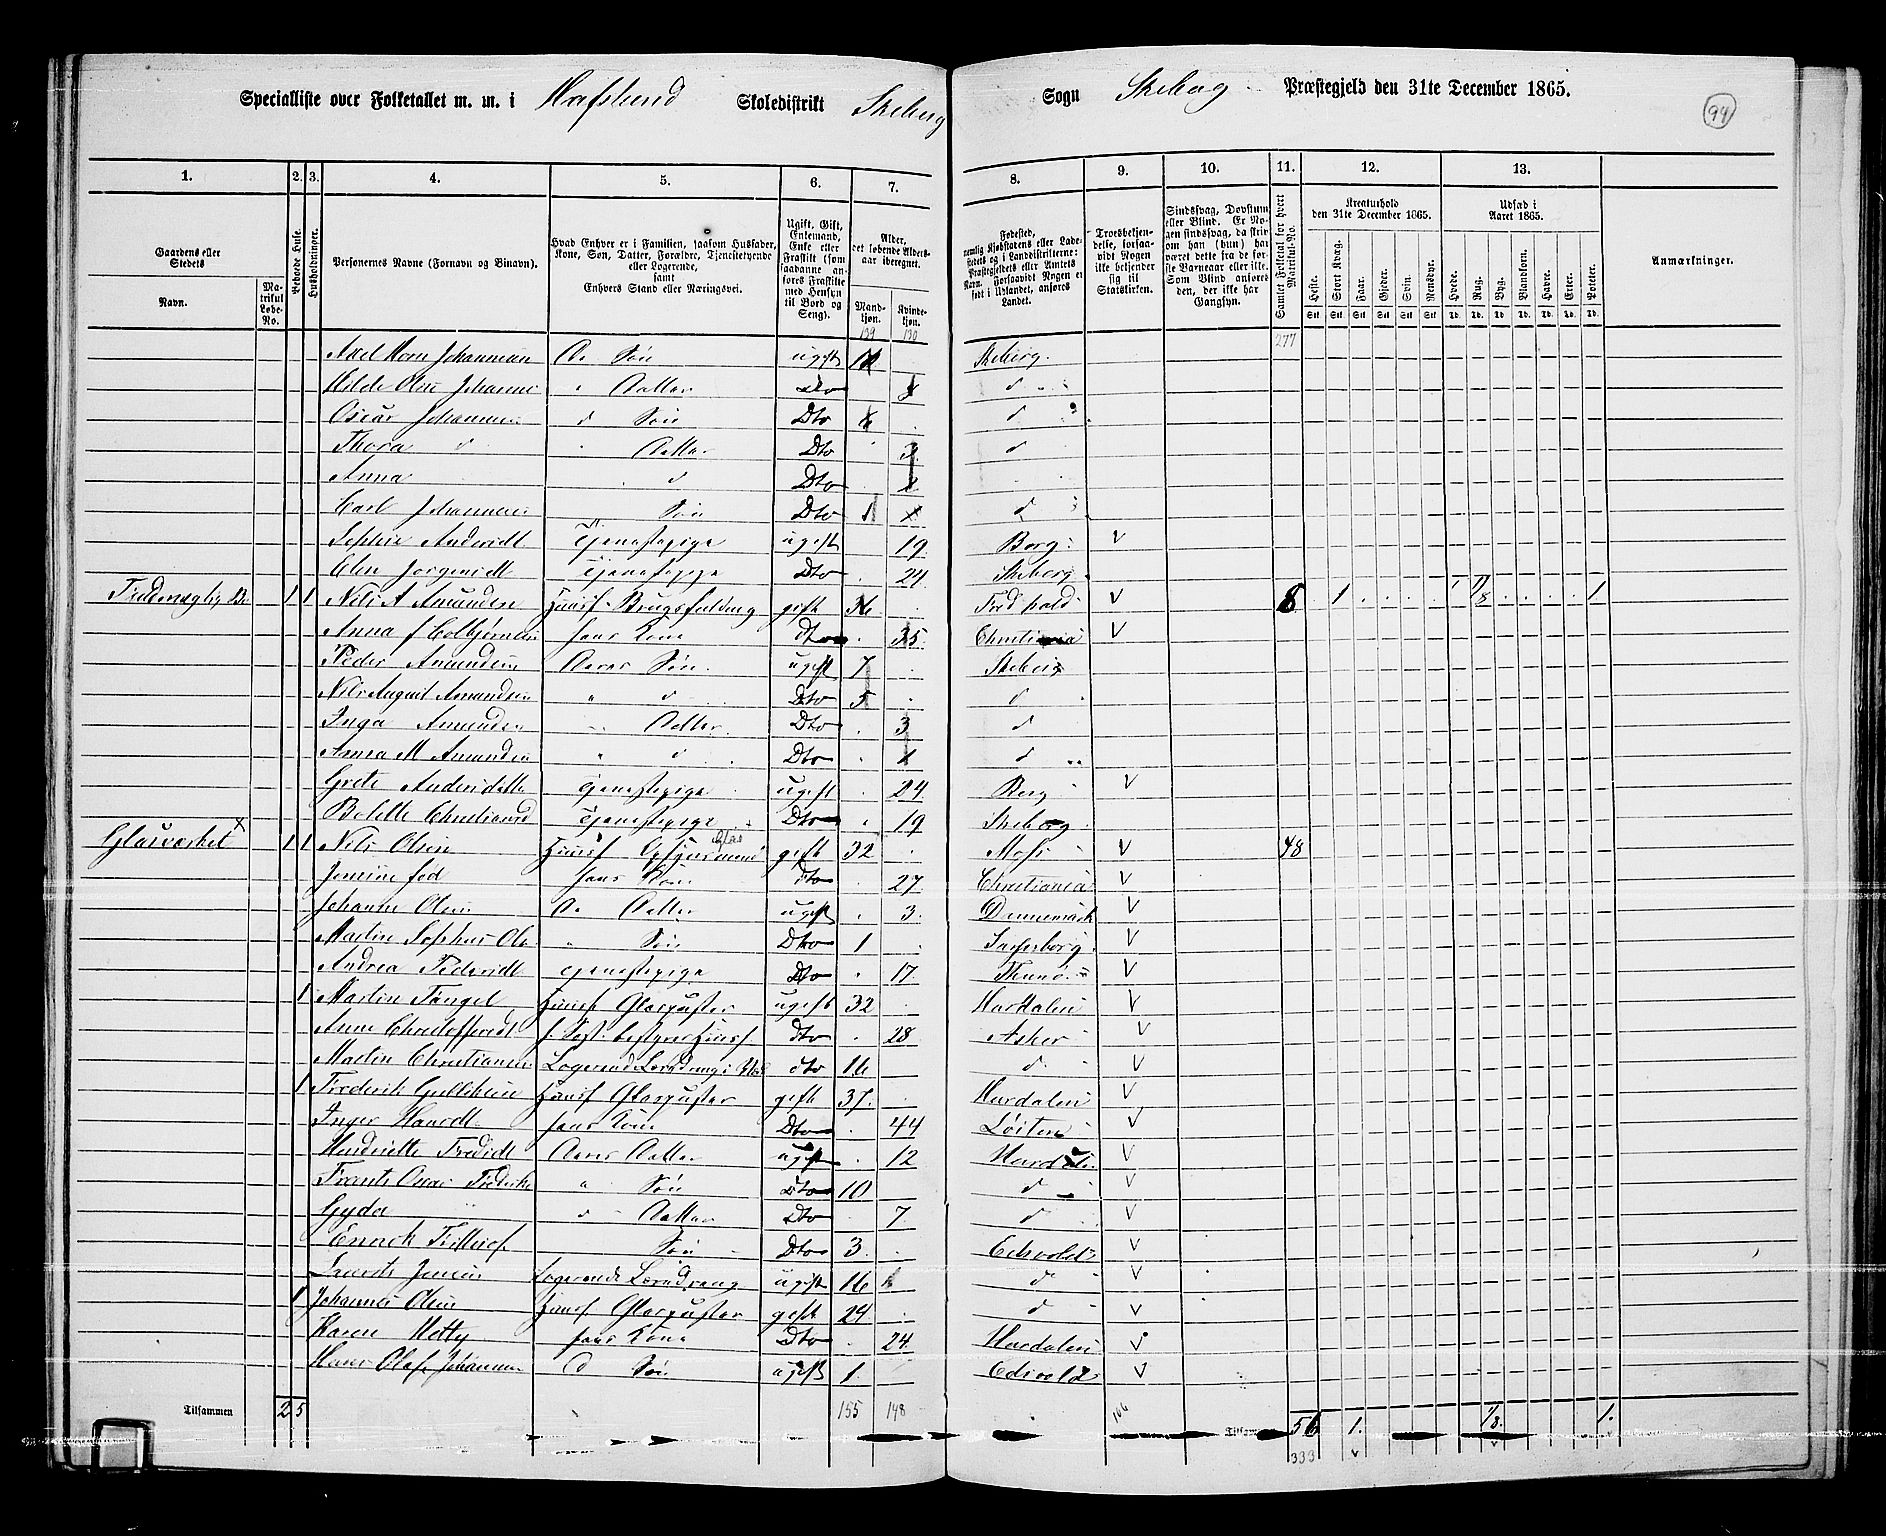 Specialliste over Folketallet m. m. i Hafslund Skoledistrikt Skeberg Sogn Skeberg Præstegjeld den 31te December 1865.
94
1. 2. 3. 4. 5. 6. 7. 8. 9. 10. 11. 12. 13.
Gaardens eller Stedets
Navn.
Matrikul Løbe-No.
Beboede Huse.
Husholdninger.
Personernes Navne (Fornavn og Binavn).
Hvad Enhver er i Familien, saasom Husfader, Kone, Søn, Datter, Forældre, Tjenestetyende eller Logerende, samt Enhvers Stand eller Næringsvei.
Ugift, Gift, Enkemand, Enke eller Fraskilt (som saadanne anføres Fraskilte med Hensyn til Bord og Seng).
Alder, det løbende Aldersaar iberegnet.
Mandkjøn. Kvindekjøn.
Fødested,
nemlig Kjøbstadens eller Ladestedets og i Landdistrikterne: Præstegjeldets eller Amtets Navn. Forsaavidt Nogen er født i Udlandet, anføres Landet.
Troesbekjendelse, forsaavidt Nogen ikke bekjender sig til Statskirken.
Sindssvag, Døvstum eller Blind. Er Nogen sindssvag, da skrives om han (hun) har været dette fra de første Barneaar eller ikke. Som Blind anføres den, der ikke har Gangsyn.
Samlet Folketal for hvert Matrikul-No.
Kreaturhold den 31te December 1865.
Heste. Stort Kvæg. Faar. Gjeder. Svin. Rensdyr.
Udsæd i Aaret 1865.
Hvede. Rug. Byg. Blandkorn. Havre. Erter. Poteter.
Anmærkninger.
139 130 277
Axel Horn Johannesen De Søn ugift Skeberg.
Hilda Olou Johanne " Datter Dto d
Oscar Johannesen d Søn Dto d
Thora d Datter Dto 3 d
Anna d Dto
Carl Johannesen Søn Dto 1 d
Sophie Andersdt Tjenestepige ugift 19 Borg V
Elen Jørgensdt Tjenestepige Dto 24 Skeberg
1 1 Nils A Amundsen Huusf Brugsfuldmg gift 36 Fredhald V 8 1 1/8 1
Anna f Colbjørnsen hans Kone dto 35 Christiania V
Peder Amundsen Deres Søn ugift 7 Skeberg
Nils August Amundsen " d Dto 5 d
Inga Amundsen Datter Dto 3 d
Anna M Amundsen " d Dto 1 d
Grete Andersdatte Tjenestepige ugift 24 Berg V
Bolette Christiansd Tjenestepige Dto 19 Skeberg
Glasværket 1 1 Nils Olsen Huusf gift 32 Moss V 48
Jensine fød hans Kone dto 27 Christiania V
Johanne Olsen De Datter ugift 3 Dannemark V
Martin Sophus Ols " Søn Dto 1 Sarpsborg V
Andrea Pedersdt Tjenestepige Dto 17 Thunø V
1 Martin Tangel Huusf Glaspuster ugift 32 Hurdalen V
Anne Christoffersdt f. Søst. bestyrer Huusf dto 28 Asker V
Martin Christiansen Logerende Læredreng i dto 16 d V
1 Frederik Gullichsen Huusf Glaspuster gift 37 Hurdalen V
Inger Hansdt hans Kone Dto 44 Løiten V
Hendriette Fredsdt Deres Datter ugift 12 Hurdalen V
Frants Oscar Frederiks " Søn Dto 10 d V
Gyda d Datter Dto 7 d V
Enock Frithiof Søn Dto 3 Edsvold V
Laurits Jensen Logerende Læredreng ugift 16 d V
1 Johannes Olsen Huusf Glaspuster gift 24 d V
Karen Hetty hans Kone Dto 24 Hurdalen V
Hans Olaf Johannes d Søn ugift 1 Edsvold V
Tilsammen 2 5 155 148 106 Tilsammen 56 1. 1/8. 1.
333